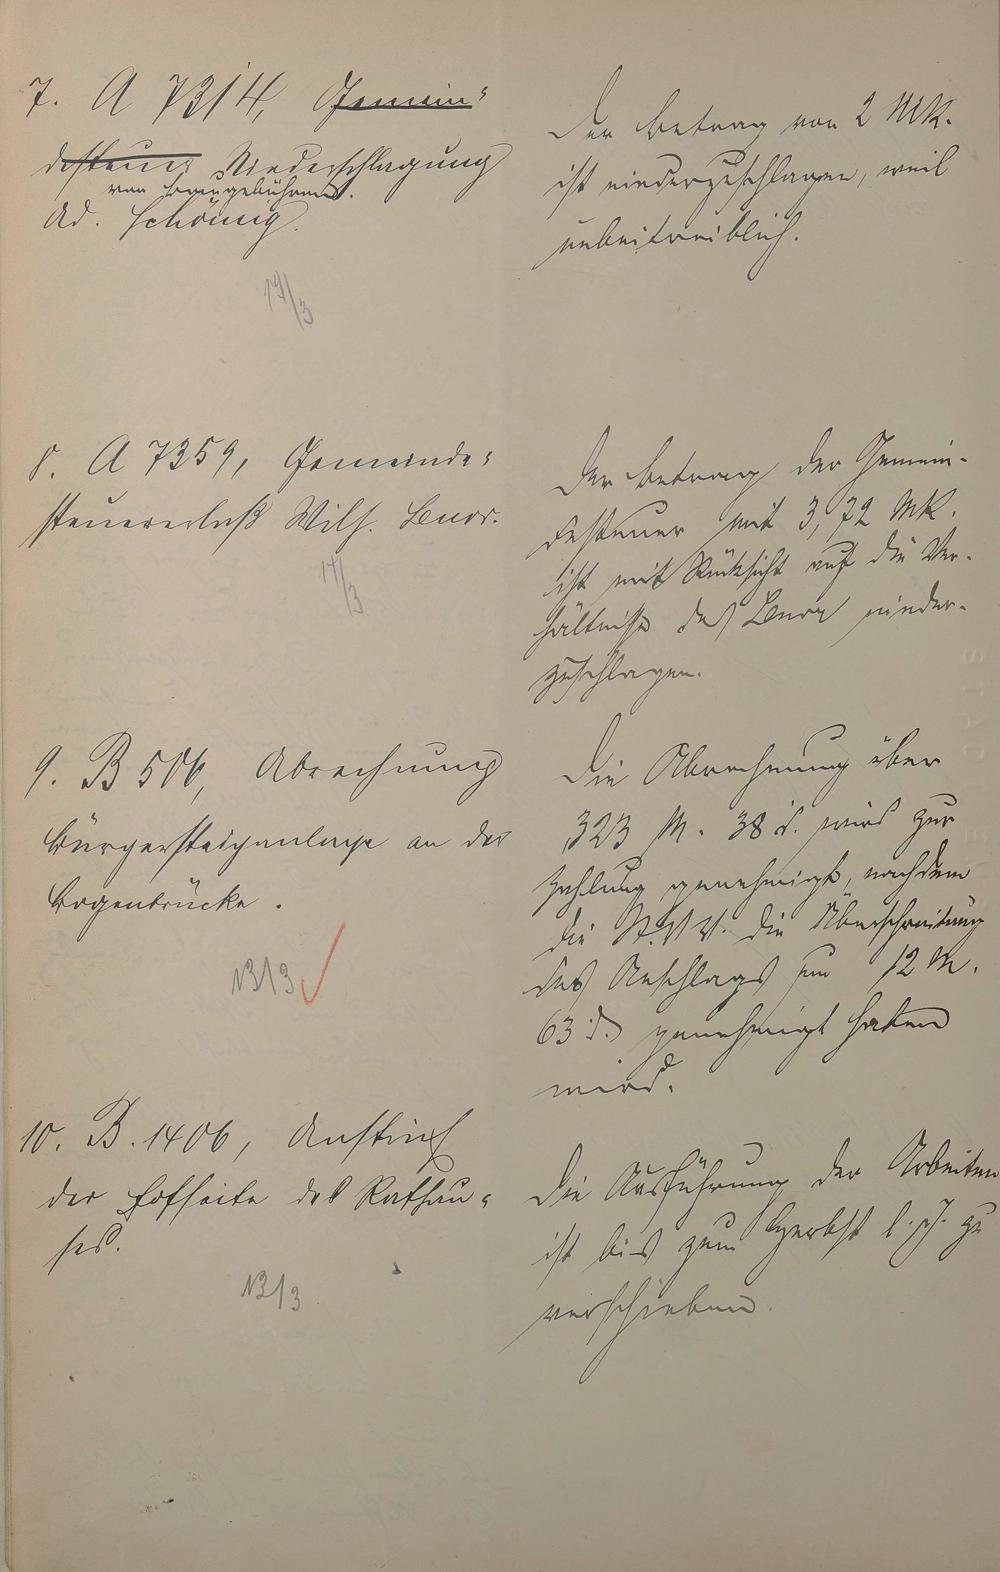 7. A 7314, Gemein-
desteuer Niederschlagung
von
Ad. Schönig.
14/3
Der Betrag von 2 Mk.
ist niederzuschlagen, weil
unbeitreiblich.
8. A 7359, Gemeinde-
steuererlaß Wilh.
14/3
Der Betrag der Gemein-
desteuer mit 3,72 Mk.
ist mit Rücksicht auf die Ver-
hältnisse des nieder-
zuschlagen.
9. B 506, Abrechnung
Bürgersteiganlage an der
Bogenbrücke.
13/3
Die Abrechnung über
323 M. 38 d. wird zur
Zahlung genehmigt, nachdem
die St.V.V. die Überschreitung
des Anschlags um 12 M.
63 d. genehmigt haben
wird.
10. B. 1406, Anstrich
der Hofseite des Rathau-
ses.
13/3
Die Ausführung der Arbeiten
ist bis zum Herbst l. Js. zu
verschieben.